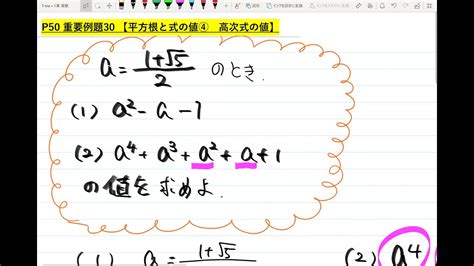 P50 重要例題30 【平方根と式の値④ 高次式の値】
a = (1+√5)/2 のとき.
(1) a² - a - 1
(2) a⁴ + a³ + a² + a + 1
の値を求めよ.
(1) a = 1+√5
(2) a⁴